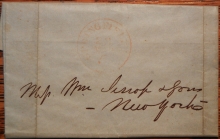 Mess Wm Jessop & Sons
- New York